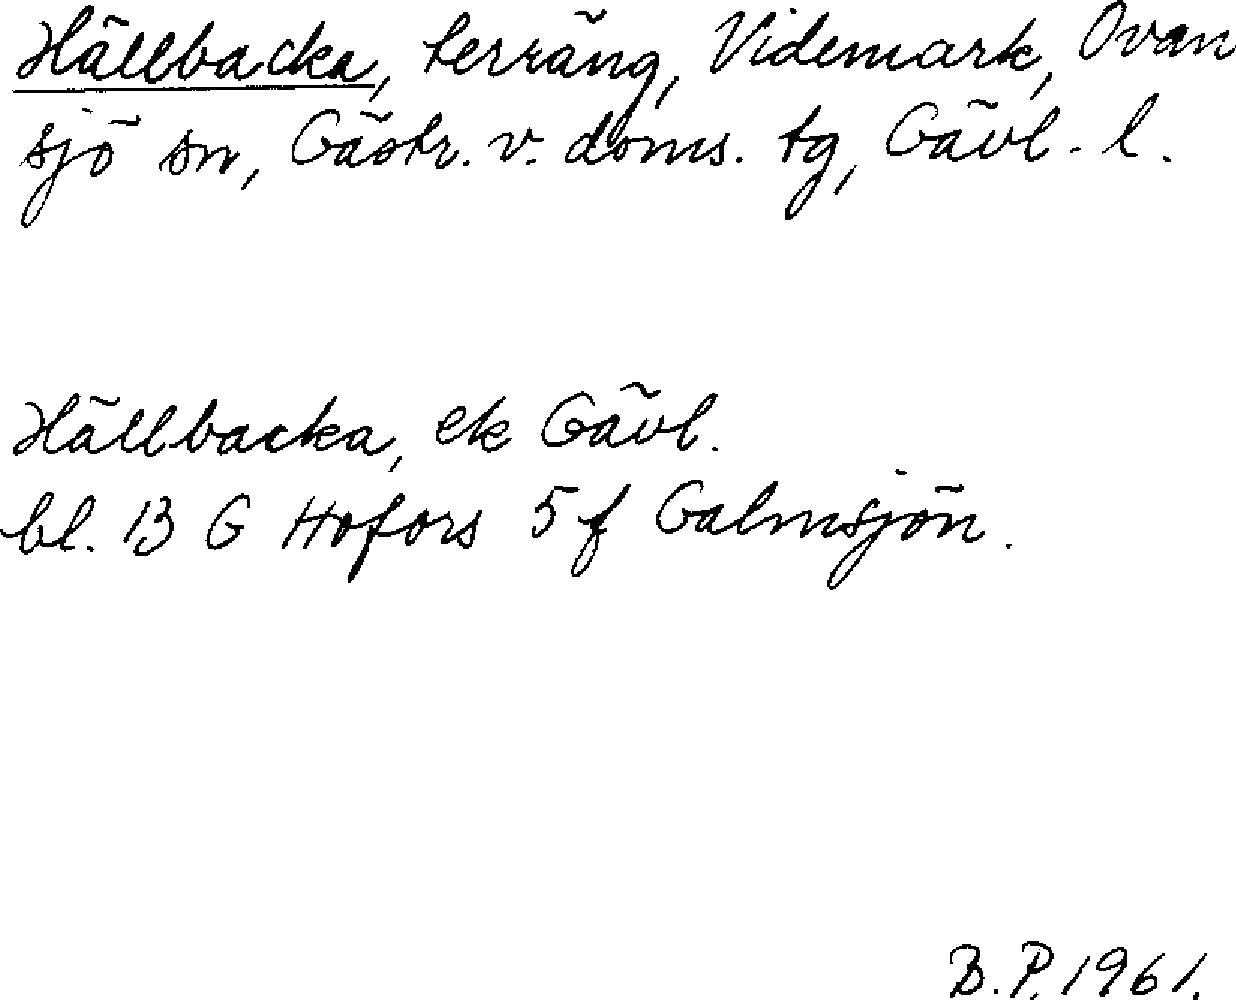 Hällbacka, terräng, Videmark, Ovan
sjö sn, Gästr. v. doms. tg, Gävl. l.
Hällbacka, ek Gävl.
bl. 13 G Hofors 5 f Galmsjön.
B.P. 1961.